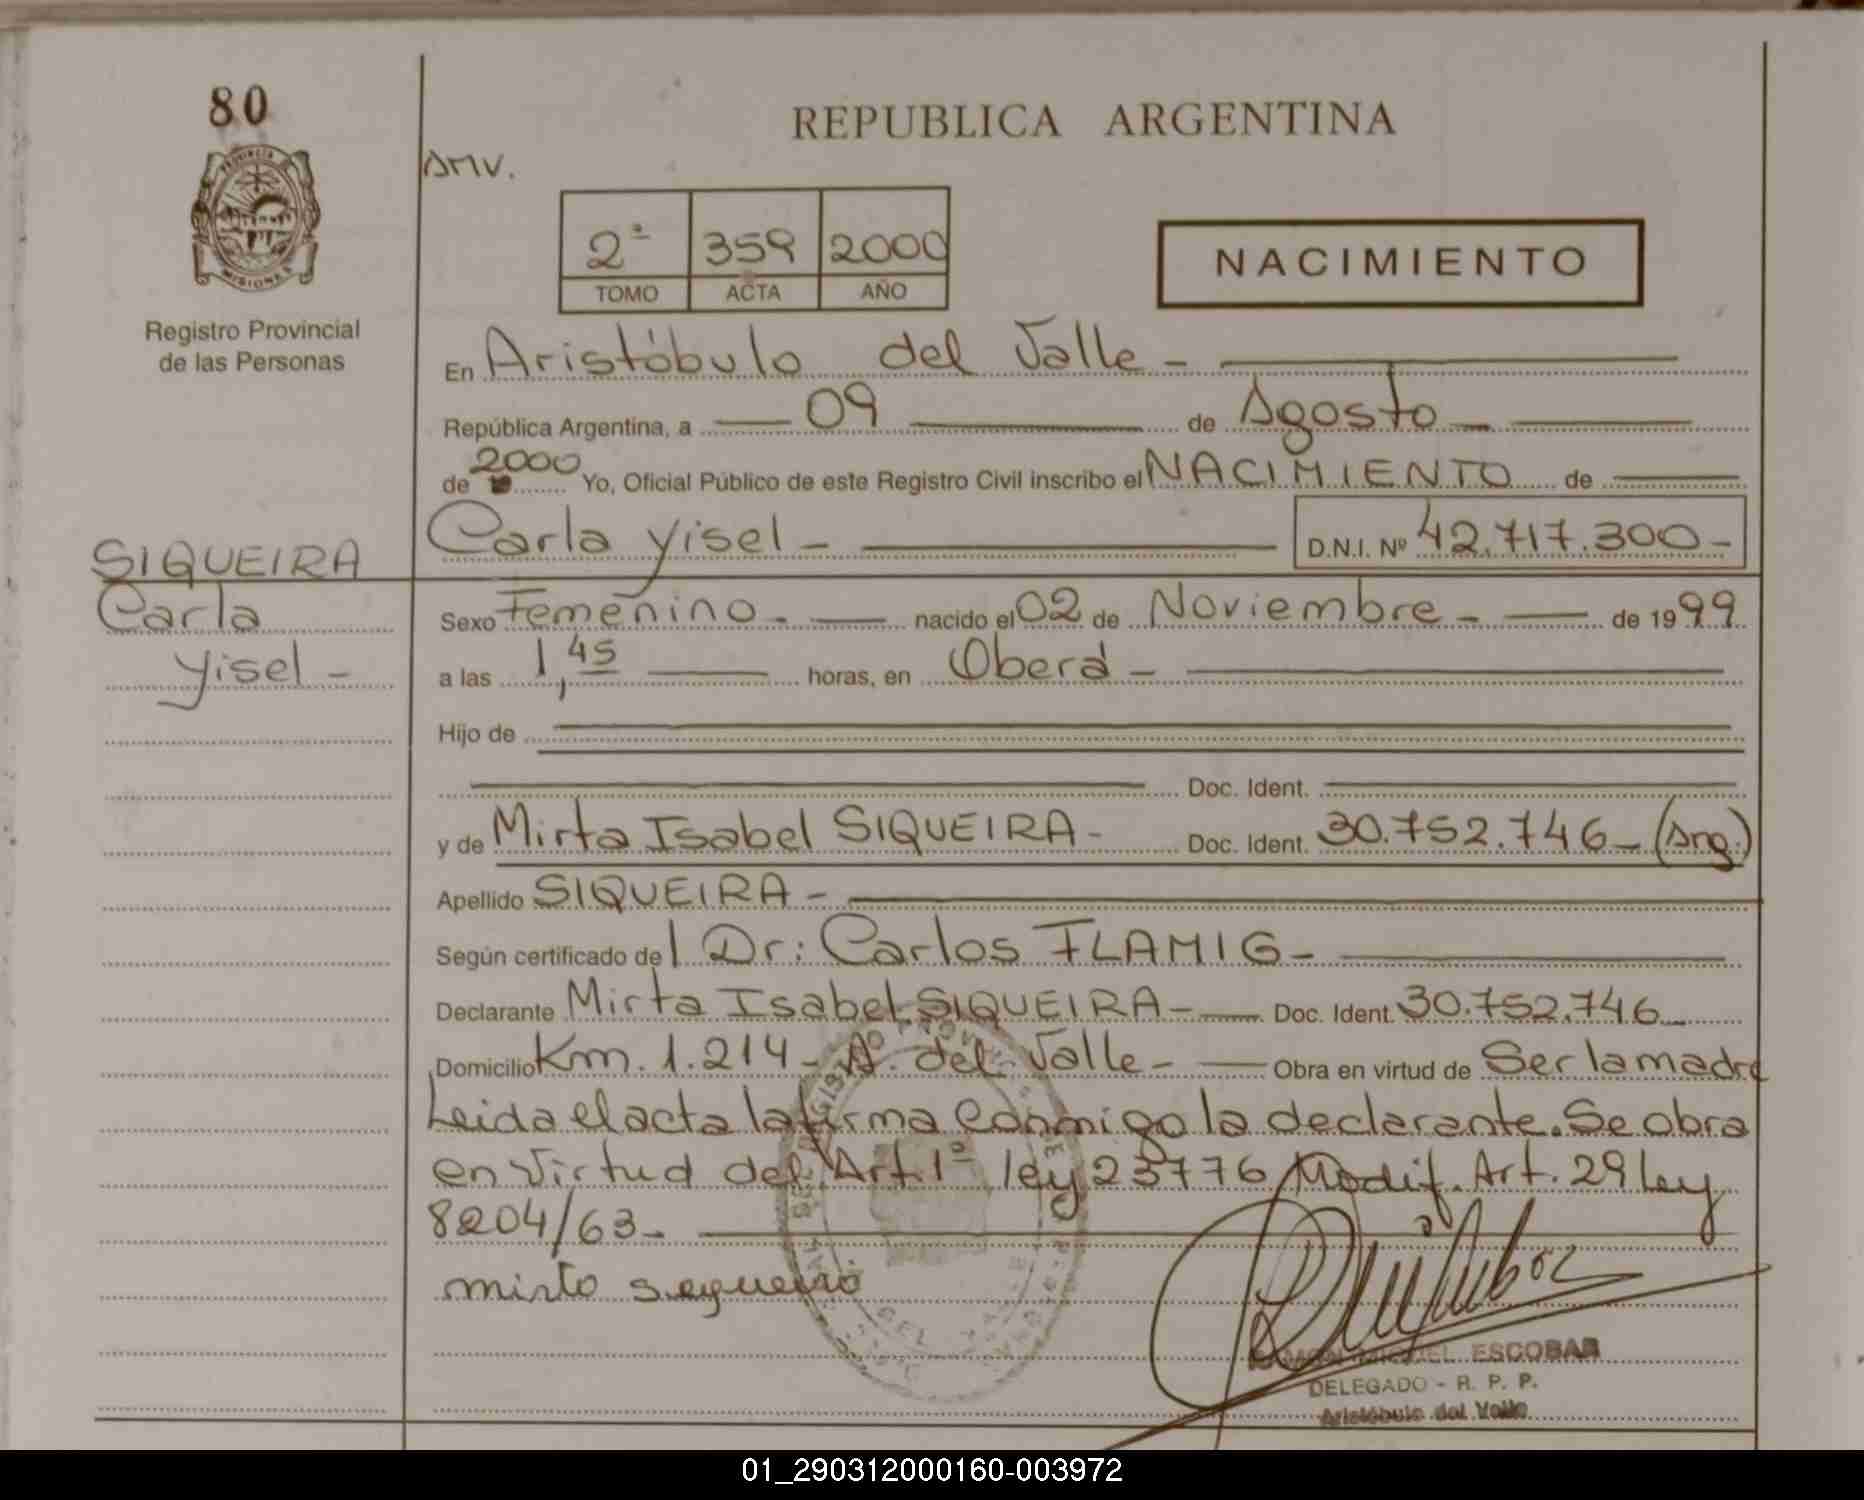 80
PROVINCIA
MISIONES
Registro Provincial
de las Personas
AMV.
REPUBLICA ARGENTINA
2ª 359 2000
TOMO ACTA AÑO
NACIMIENTO
En Aristóbulo del Valle -
República Argentina, a 09 de Agosto
de 2000 Yo, Oficial Público de este Registro Civil inscribo el NACIMIENTO de
Carla Yisel - D.N.I. Nº 42.717.300 -
SIQUEIRA
Carla
Yisel -
Sexo Femenino - nacido el 02 de Noviembre - de 1999
a las 1,45 horas, en Oberá -
Hijo de
Doc. Ident.
y de Mirta Isabel SIQUEIRA - Doc. Ident. 30.752.746 - (Arg.)
Apellido SIQUEIRA -
Según certificado del Dr: Carlos FLAMIG -
Declarante Mirta Isabel SIQUEIRA - Doc. Ident. 30.752.746
Domicilio Km. 1.214 - A. del Valle - Obra en virtud de Ser la madre
Leida el acta la firma conmigo la declarante. Se obra
en virtud del Art. 1º ley 23776 Modif. Art. 29 Ley
8204/63 -
mirta sequeira
RAMON MIGUEL ESCOBAR
DELEGADO - R. P. P.
Aristóbulo del Valle
01_290312000160-003972